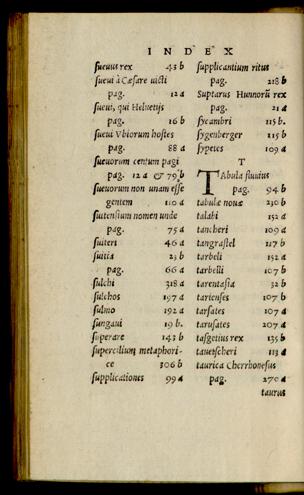 INDEX
sueuus rex 43 b
sueui à Cæsare uicti
pag. 12 a
sueui, qui Heluetijs
pag. 16 b
sueui Vbiorum hostes
pag. 88 a
sueuorum centum pagi
pag. 12 a & 79 b
sueuorum non unam esse
gentem 110 a
suitensium nomen unde
pag. 75 a
suiteri 46 a
suitia 23 b
pag. 66 a
sulchi 318 a
sulchos 197 a
sulmo 192 a
sungaui 19 b.
superare 143 b
supercilium metaphori-
ce 306 b
supplicationes 99 a
supplicantium ritus
pag. 218 b
Suptarus Hunnorū rex
pag. 21 a
sycambri 115 b.
sygenberger 115 b
sypetes 109 a
T
TAbula fluuius
pag. 94 b
tabulæ nouæ 230 b
talahi 152 a
tancheri 109 a
tangrastel 117 b
tarbeli 152 a
tarbelli 107 b
tarentasia 32 b
tarienses 107 b
tarsates 107 a
tarusates 207 a
tasgetius rex 135 b
tauetscheri 113 a
taurica Cherrhonesus
pag. 270 a
taurus